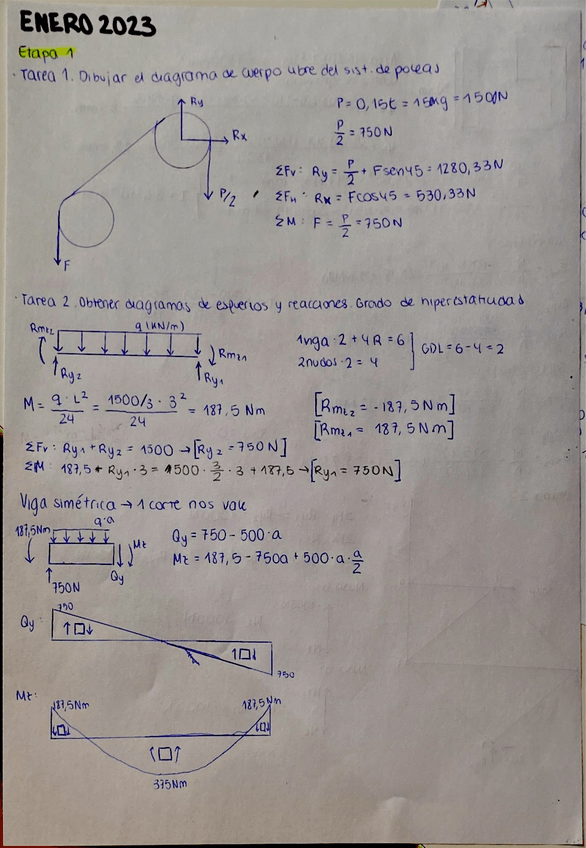 ENERO 2023
Etapa 1
· Tarea 1. Dibujar el diagrama de cuerpo libre del sist. de poleas
Ry
Rx
P/2
F
P = 0,15t = 150kg = 1500N
P/2 = 750N
ΣFv: Ry = P/2 + Fsen45 = 1280,33N
ΣFH: Rx = Fcos45 = 530,33N
ΣM: F = P/2 = 750N
· Tarea 2. Obtener diagramas de esfuerzos y reacciones. Grado de hiperestaticidad
Rmz2 q (kN/m) Rmz1
Ry2 Ry1
1 viga · 2 + 4R = 6
2 nudos · 2 = 4
GDL = 6 - 4 = 2
M = q · L² / 24 = 1500/3 · 3² / 24 = 187,5 Nm
[Rmz2 = -187,5 Nm]
[Rmz1 = 187,5 Nm]
ΣFv: Ry1 + Ry2 = 1500 → [Ry2 = 750N]
ΣM: 187,5 + Ry1 · 3 = 1500 · 3/2 · 3 + 187,5 → [Ry1 = 750N]
Viga simétrica → 1 corte nos vale
187,5Nm q·a Mz
750N Qy
Qy = 750 - 500·a
Mz = 187,5 - 750a + 500·a·a/2
Qy: 750
750
Mz: 187,5Nm 187,5Nm
375Nm